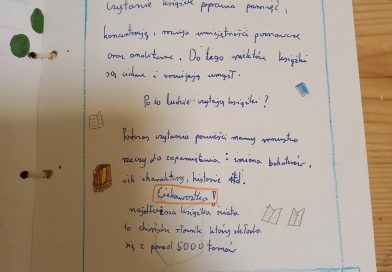 Czytanie książek poprawia pamięć,
koncentrację, rozwija umiejętności poznawcze
oraz analityczne. Do tego niektóre książki
są ciekawe i rozwijają umysł.
Po co ludzie czytają książki?
Podczas czytania powieści mamy mnóstwo
rzeczy do zapamiętania: imiona bohaterów,
ich charaktery, historie itd.
Ciekawostka!
najdłuższa książka świata
to chiński słownik który składa
się z ponad 5000 tomów